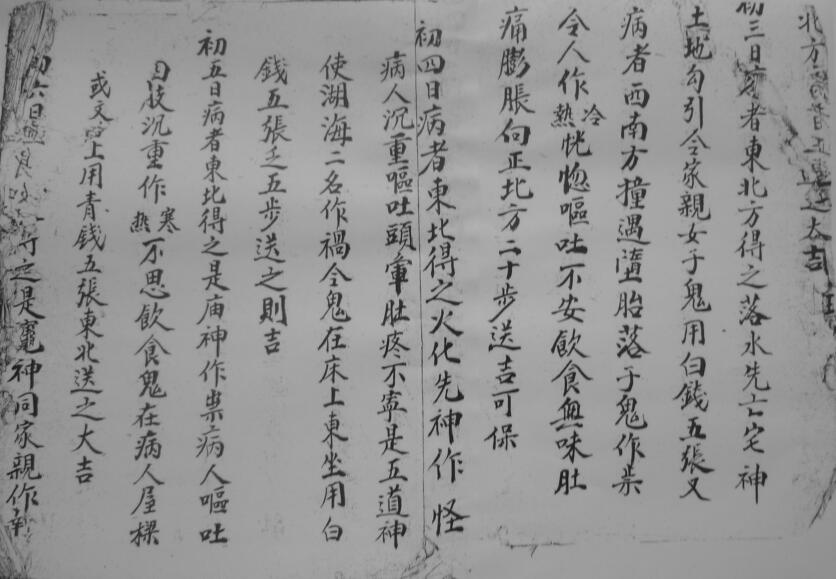 北方
初三日病者東北方得之落水先亡宅神
土地勾引令家親女子鬼用白錢五張又
病者西南方撞遇墮胎落子鬼作祟
令人作冷熱恍惚嘔吐不安飲食無味肚
痛膨脹向正北方二十步送吉可保
初四日病者東北得之火化先神作怪
病人沉重嘔吐頭暈肚疼不寧是五道神
使湖海二名作禍令鬼在床上東坐用白
錢五張乏五步送之則吉
初五日病者東北得之是庙神作祟病人嘔吐
四肢沉重作寒熱不思飲食鬼在病人屋樑
或文字上用青錢五張東北送之大吉
初六日 之是竈神同家親作